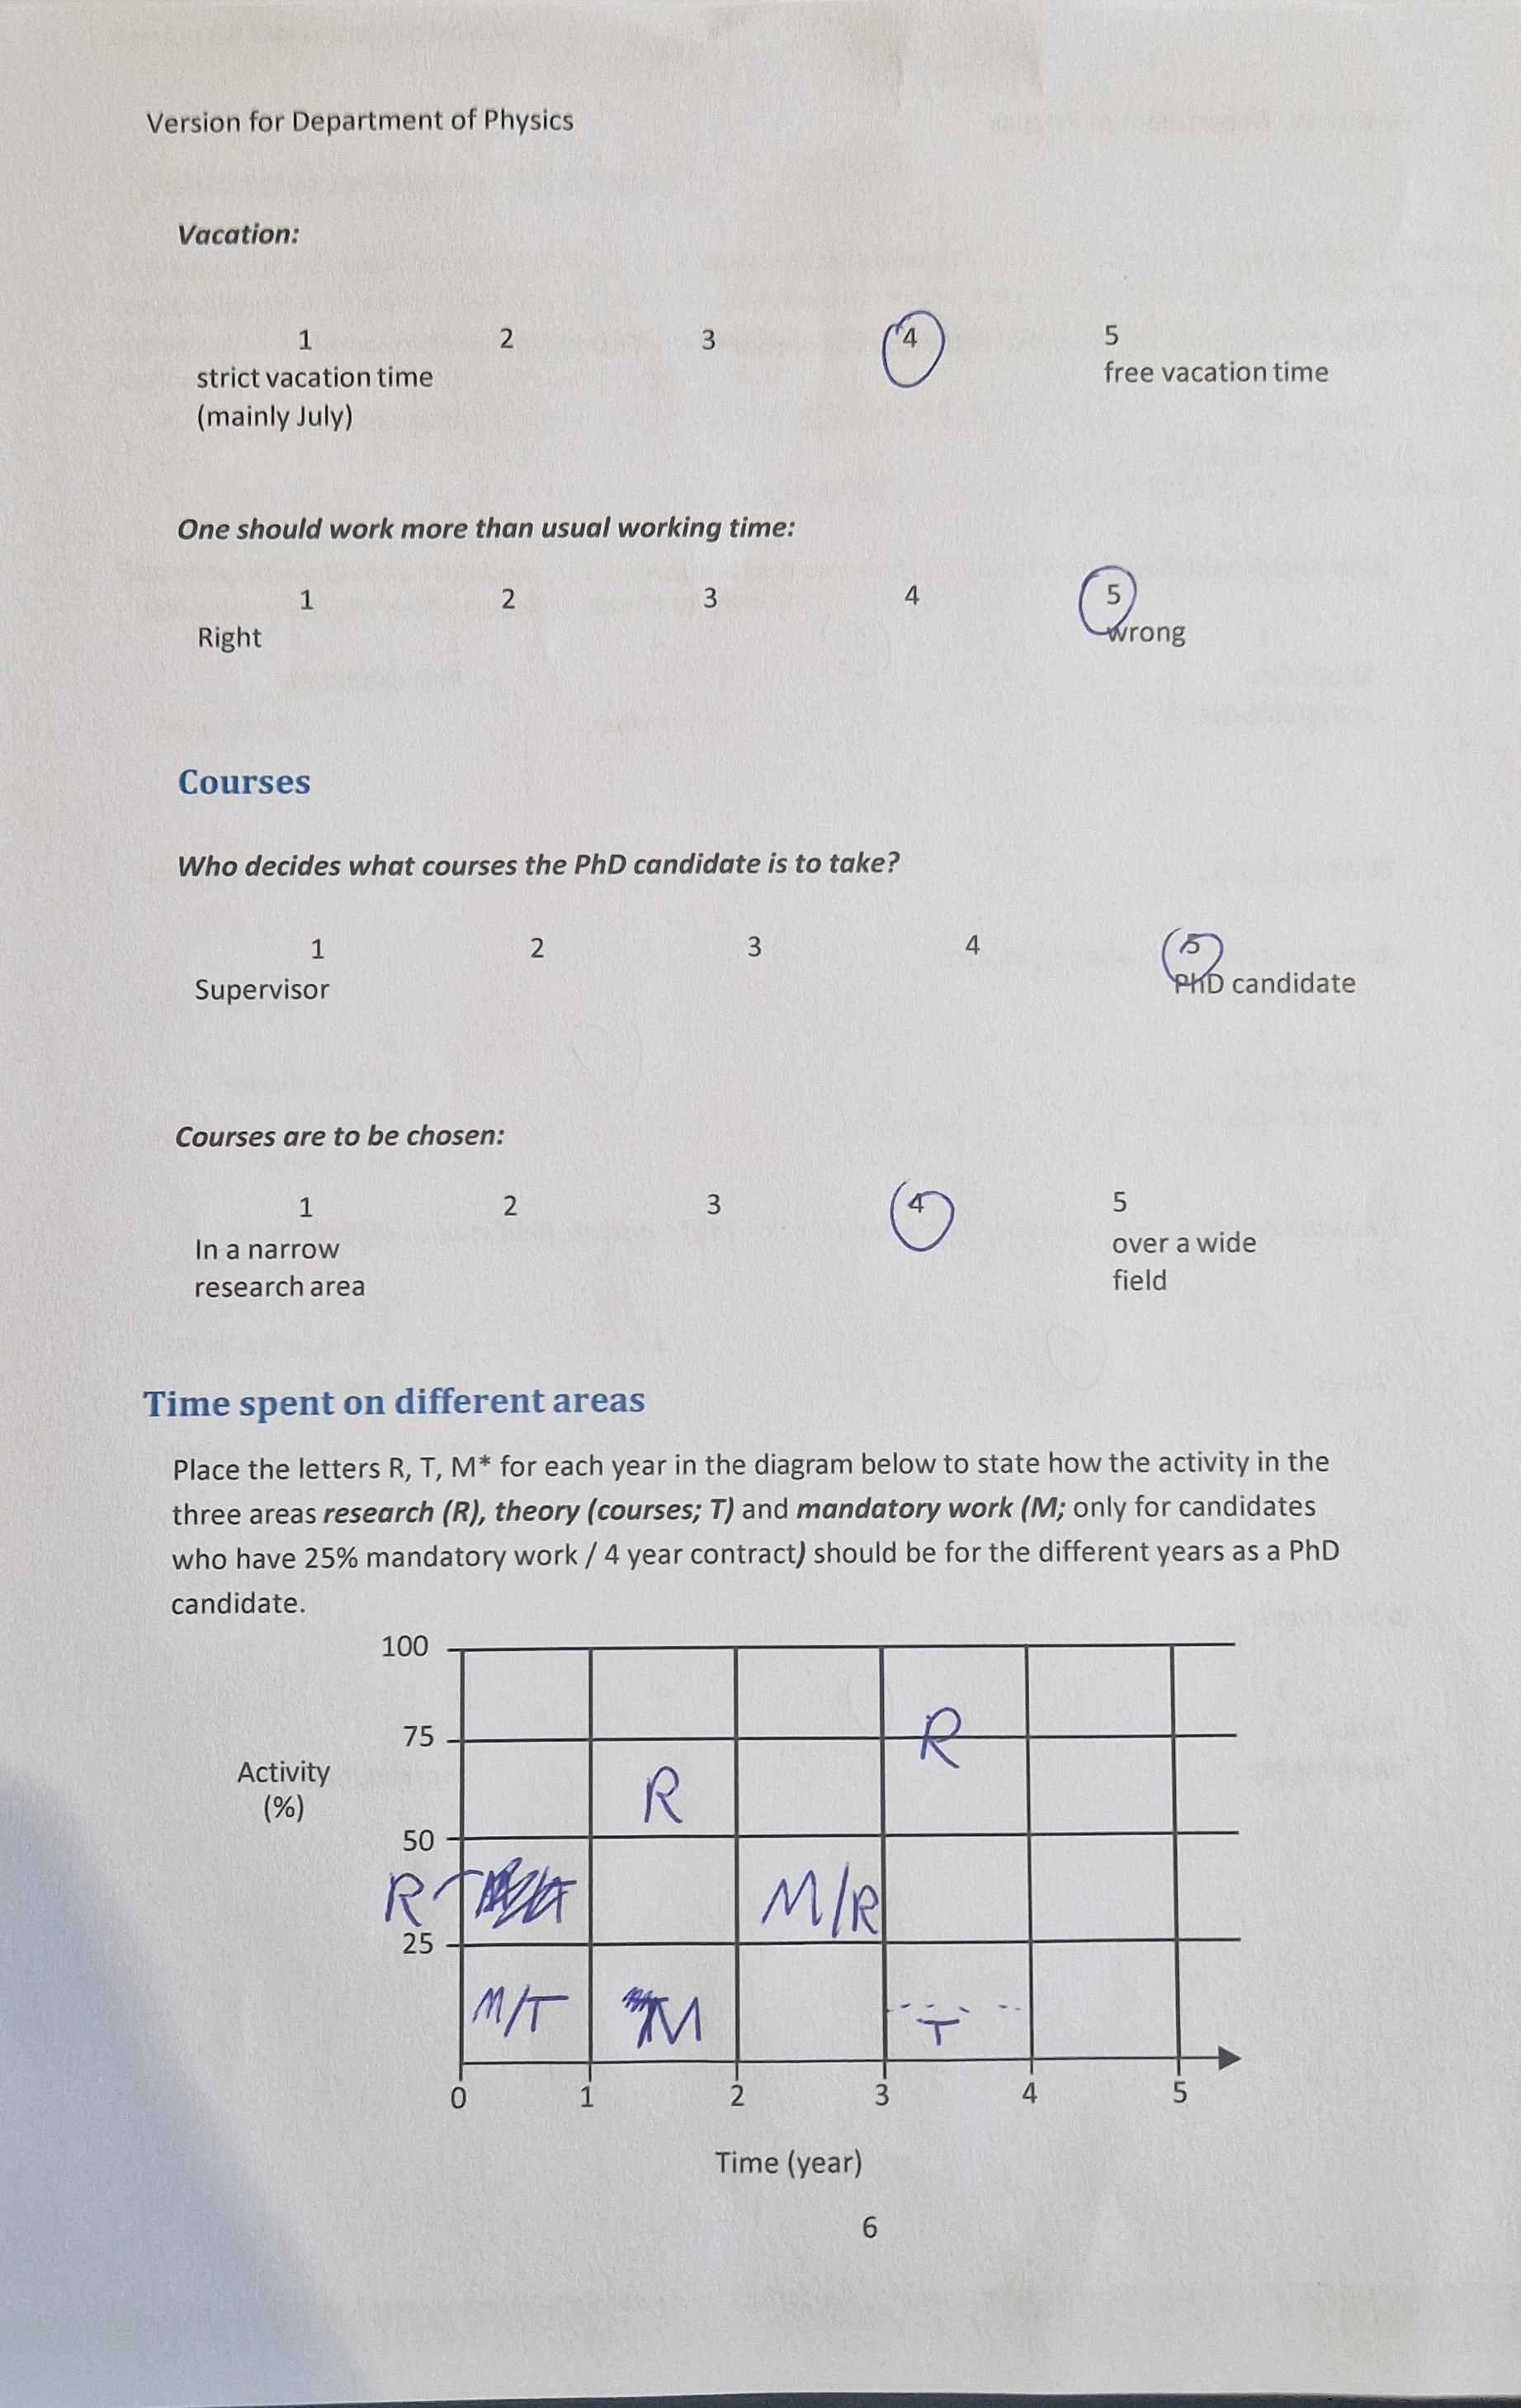 Version for Department of Physics
Vacation:
1 2 3 4 5
strict vacation time free vacation time
(mainly July)
One should work more than usual working time:
1 2 3 4 5
Right wrong
Courses
Who decides what courses the PhD candidate is to take?
1 2 3 4 5
Supervisor PhD candidate
Courses are to be chosen:
1 2 3 4 5
In a narrow over a wide
research area field
Time spent on different areas
Place the letters R, T, M* for each year in the diagram below to state how the activity in the
three areas research (R), theory (courses; T) and mandatory work (M; only for candidates
who have 25% mandatory work / 4 year contract) should be for the different years as a PhD
candidate.
100
R
75
Activity
(%)
R
50
R M/R
25
M/T M T
0 1 2 3 4 5
Time (year)
6